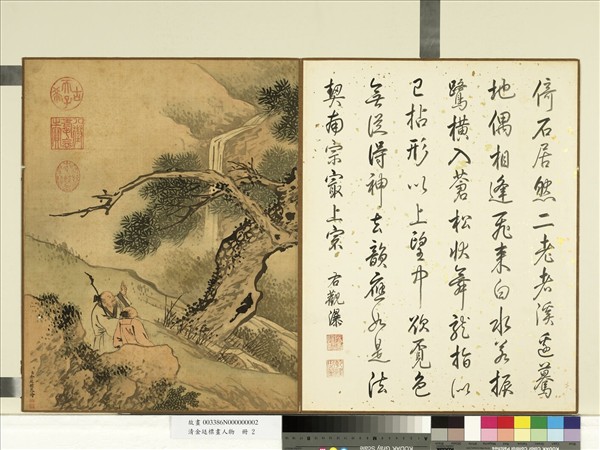 倚石居然二老者溪邊驀
地偶相逢飛来白水若振
鷺橫入蒼松狀舞龍指以
已拈形以上望中欲覓色
無從得神去韻應如是法
契南宗㝡上宗 右觀瀑
古希天子
故畫 003386N000000002
清金廷標畫人物 冊 2
KODAK Gray Scale